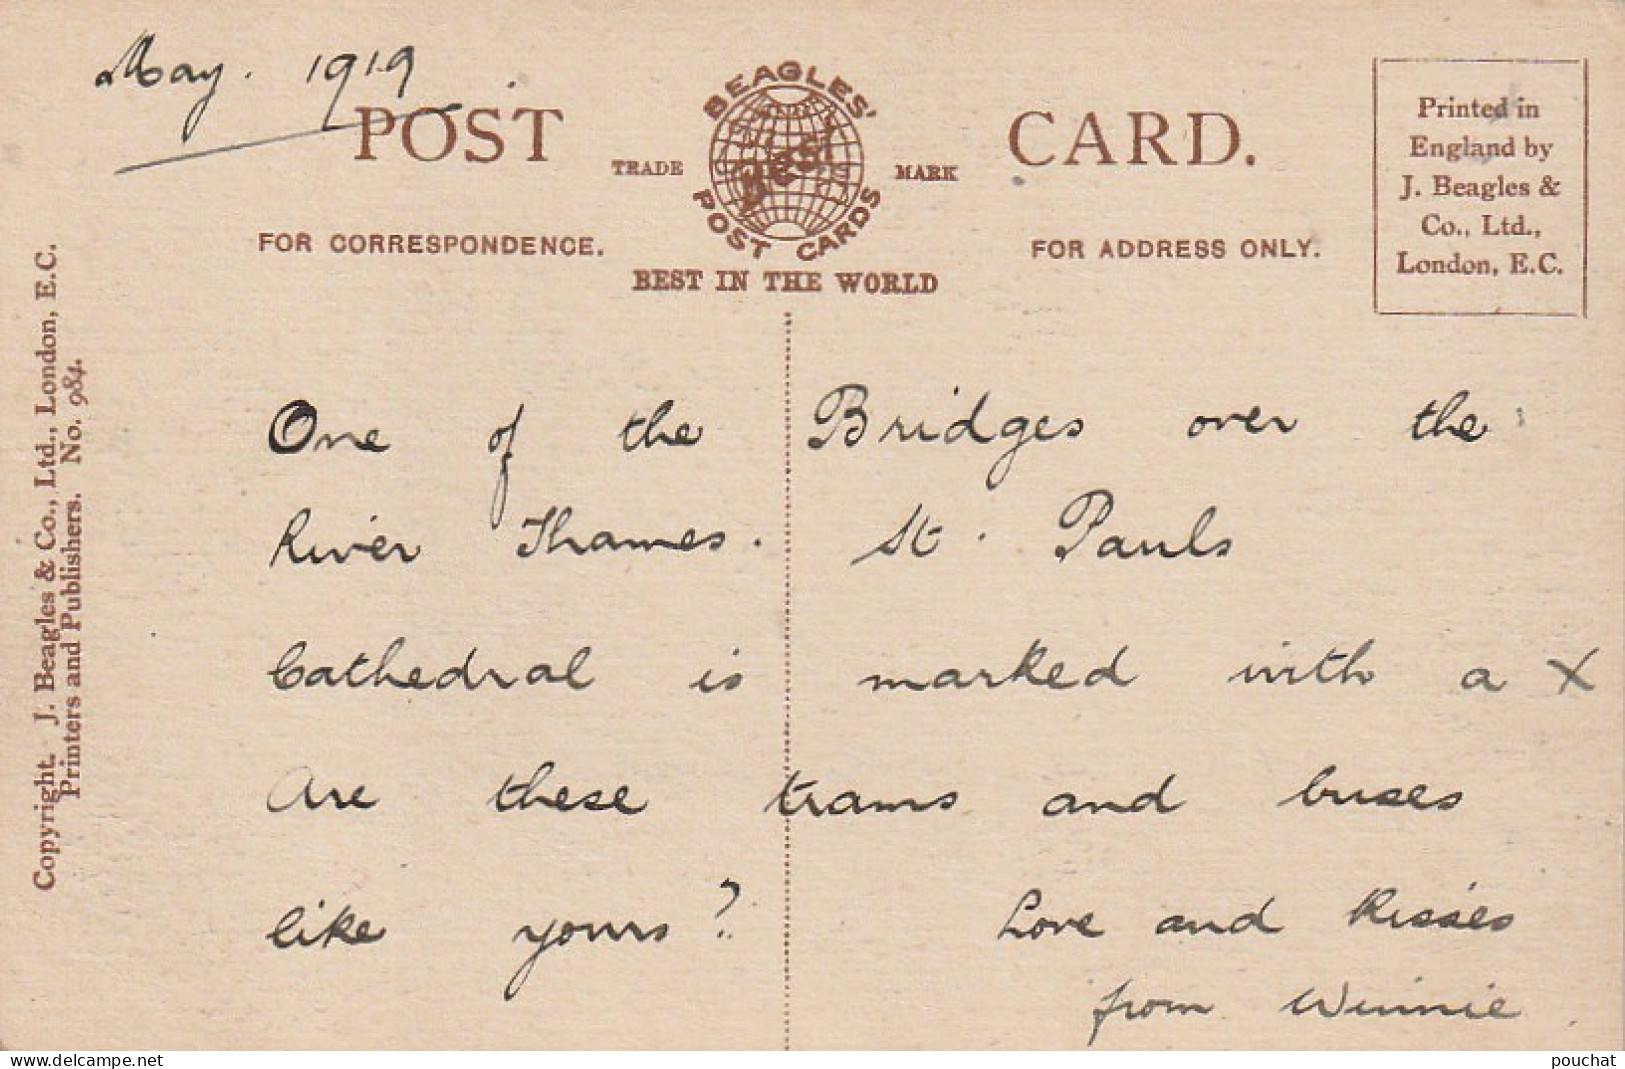 May. 1919
POST CARD.
BEAGLES'
BEST
POST CARDS
TRADE MARK
BEST IN THE WORLD
FOR CORRESPONDENCE.
FOR ADDRESS ONLY.
Printed in
England by
J. Beagles &
Co., Ltd.,
London, E.C.
Copyright. J. Beagles & Co., Ltd., London, E.C.
Printers and Publishers. No. 984.
One of the Bridges over the
River Thames. St. Pauls
Cathedral is marked with a X
Are these trams and buses
like yours? Love and Kisses
from Winnie.
www.delcampe.net
pouchat